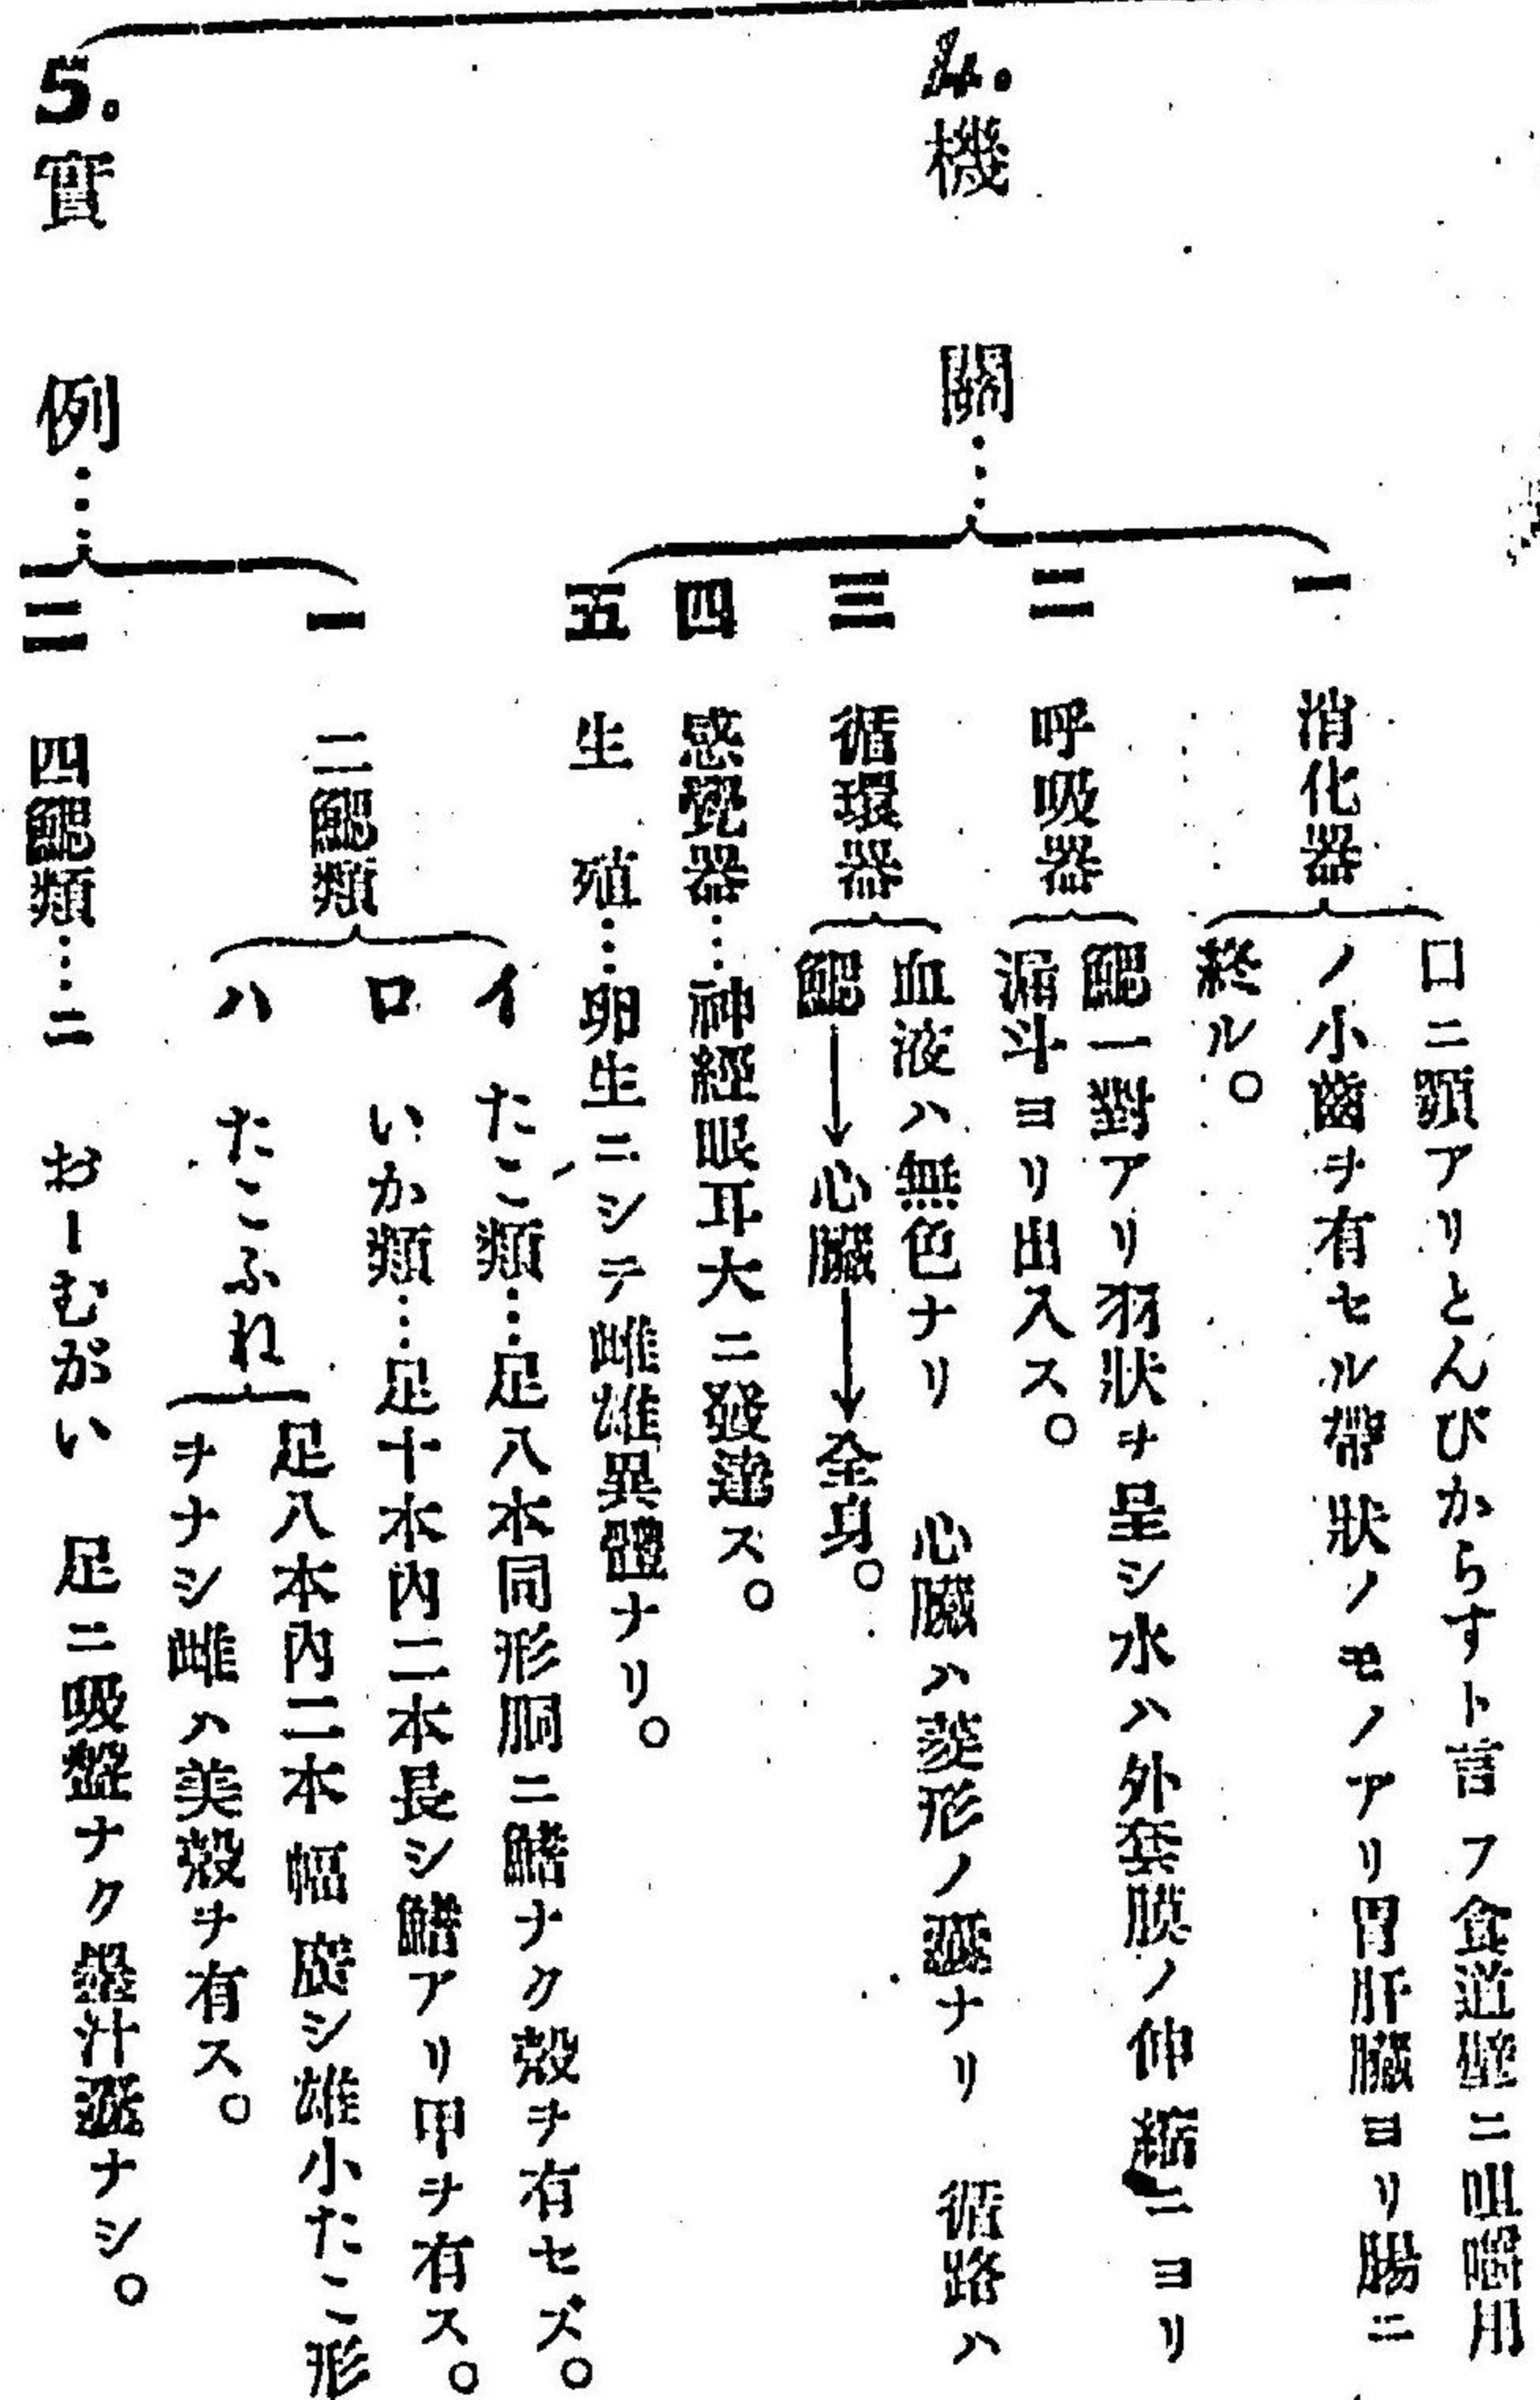 4.機關……
一 消化器
口ニ顎アリとんびからすト言フ食道壁ニ咀嚼用
ノ小齒ヲ有セル帶狀ノモノアリ胃肝臟ヨリ腸ニ
終ル。
二 呼吸器
鰓一對アリ羽狀ヲ呈シ水ハ外套膜ノ伸縮ニヨリ
漏斗ヨリ出入ス。
三 循環器
血液ハ無色ナリ 心臟ハ菱形ノ嚢ナリ 循路ハ
鰓→心臟→全身。
四 感覺器……神經眼耳大ニ發達ス。
五 生殖……卵生ニシテ雌雄異體ナリ。
5.實例……
一 二鰓類
イ たこ類……足八本同形胴ニ鰭ナク殼ヲ有セズ。
ロ いか類……足十本內二本長シ鰭アリ甲ヲ有ス。
ハ たこふね
足八本內二本幅廣シ雄小たこ形
ヲナシ雌ハ美殼ヲ有ス。
二 四鰓類……ニ おーむがい 足ニ吸盤ナク墨汁嚢ナシ。